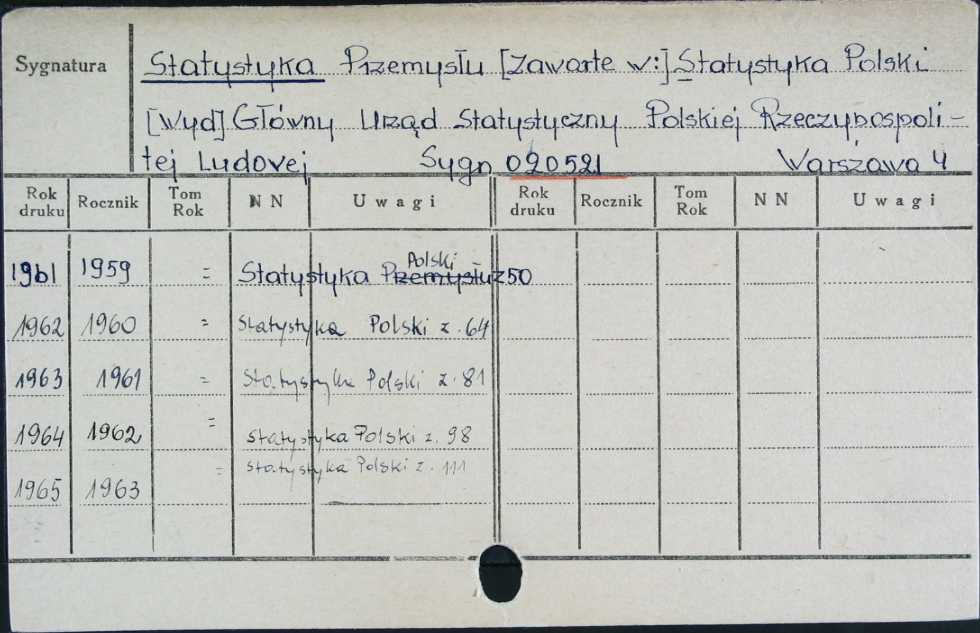 Sygnatura
Statystyka Przemysłu [Zawarte w:] Statystyka Polski
[Wyd] Główny Urząd Statystyczny Polskiej Rzeczypospoli-
tej Ludovej Sygn 020521 Warszawa 4
Rok druku Rocznik Tom Rok NN Uwagi Rok druku Rocznik Tom Rok NN Uwagi
Polski
1961 1959 = Statystyka Przemysłu z 50
1962 1960 = Statystyka Polski z. 64
1963 1961 = Statystyka Polski z. 81
1964 1962 = Statystyka Polski z. 98
1965 1963 = Statystyka Polski z. 111